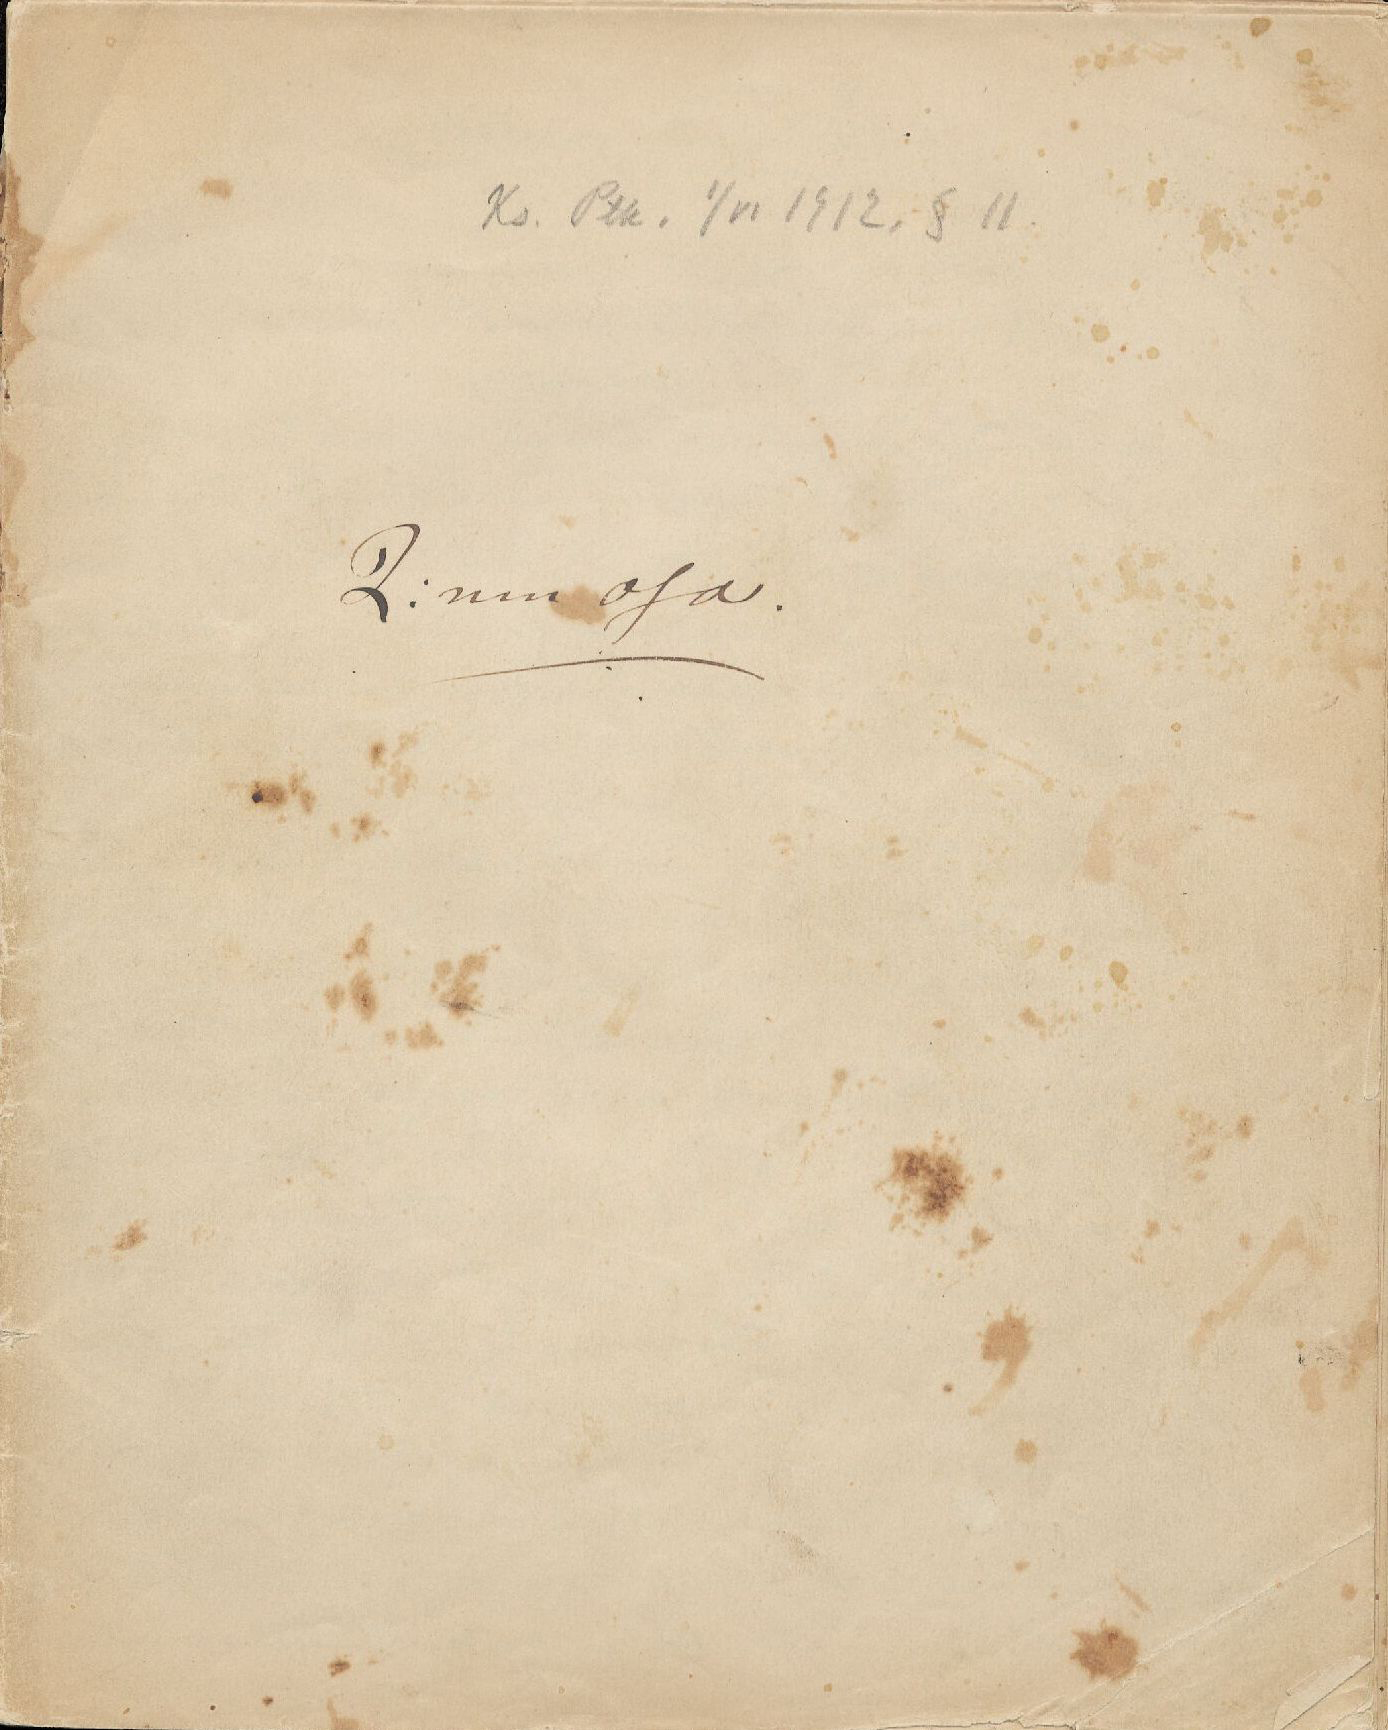 Ks. Ptk. 1/VI 1912. § 11.
2:nen osa.